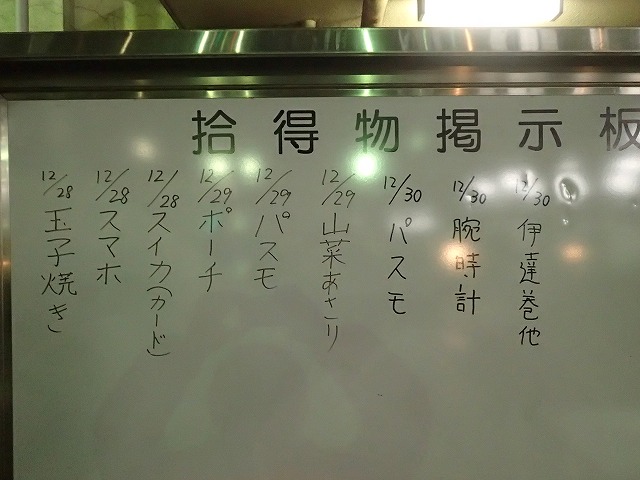 拾得物掲示板
12/30 伊達巻他
12/30 腕時計
12/30 パスモ
12/29 山菜あさり
12/29 パスモ
12/29 ポーチ
12/28 スイカ(カード)
12/28 スマホ
12/28 玉子焼き